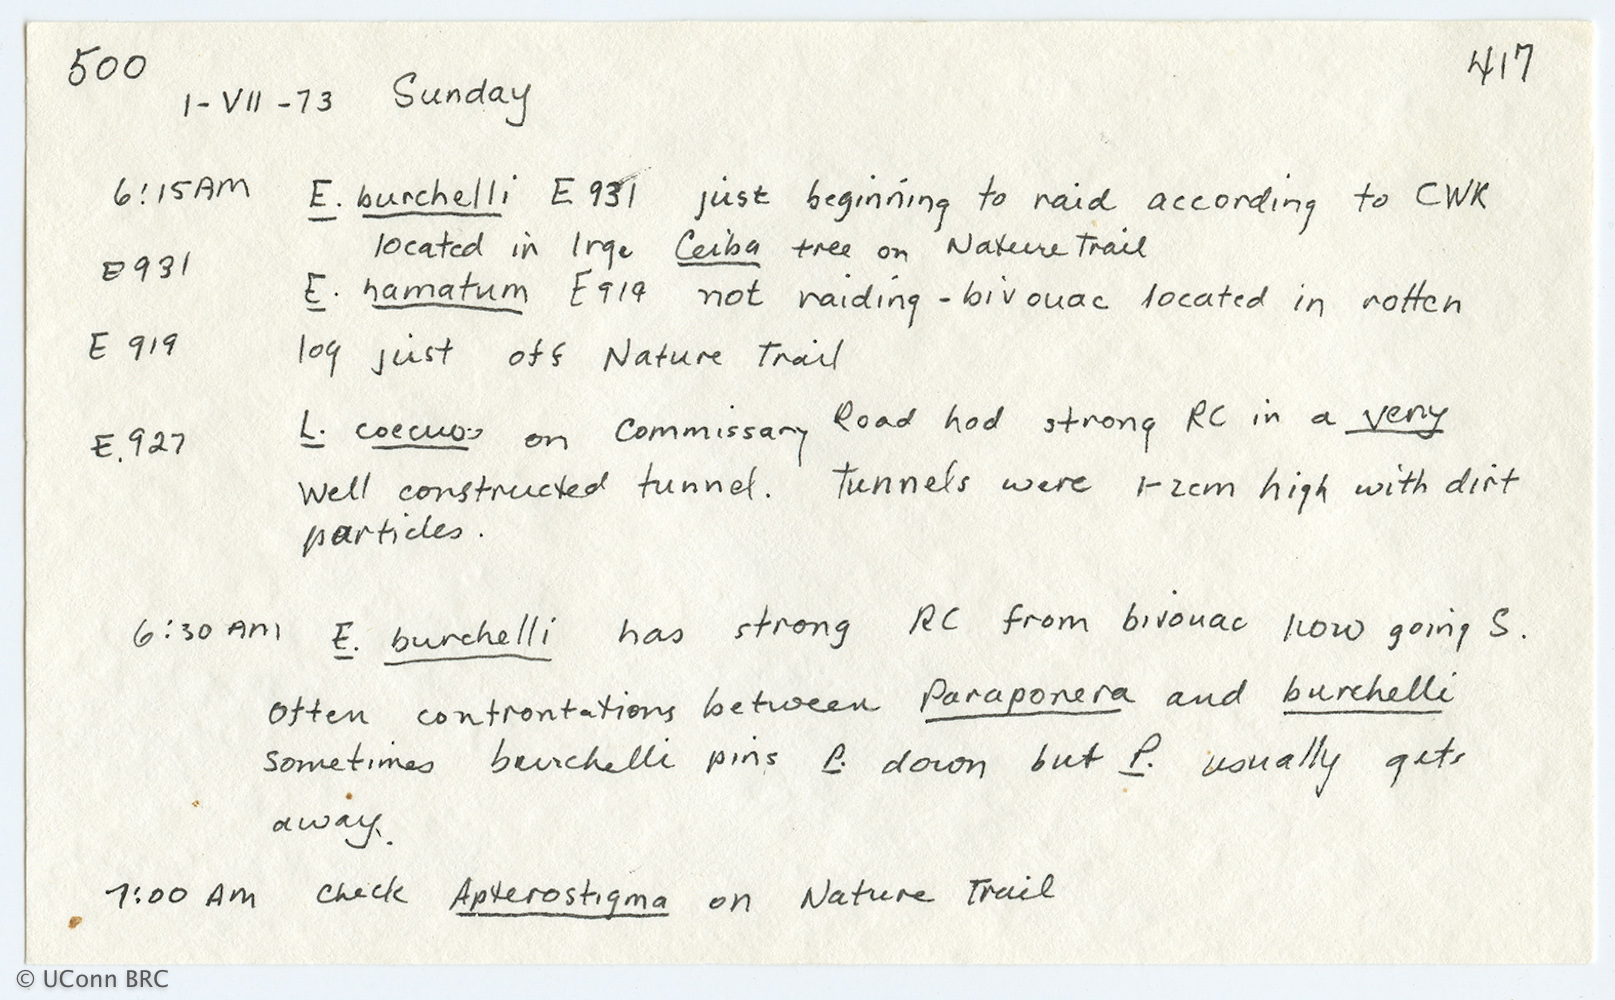 500 417
1-VII-73 Sunday
6:15AM E. burchelli E 931 just beginning to raid according to CWR
located in lrge Ceiba tree on Nature Trail
E931
E. hamatum E919 not raiding - bivouac located in rotten
E 919 log just off Nature Trail
E.927 L. coecus on Commissary Road had strong RC in a very
well constructed tunnel. Tunnels were 1-2cm high with dirt
particles.
6:30 AM E. burchelli has strong RC from bivouac now going S.
often confrontations between Paraponera and burchelli
sometimes burchelli pins P. down but P. usually gets
away.
7:00 AM check Apterostigma on Nature Trail
© UConn BRC